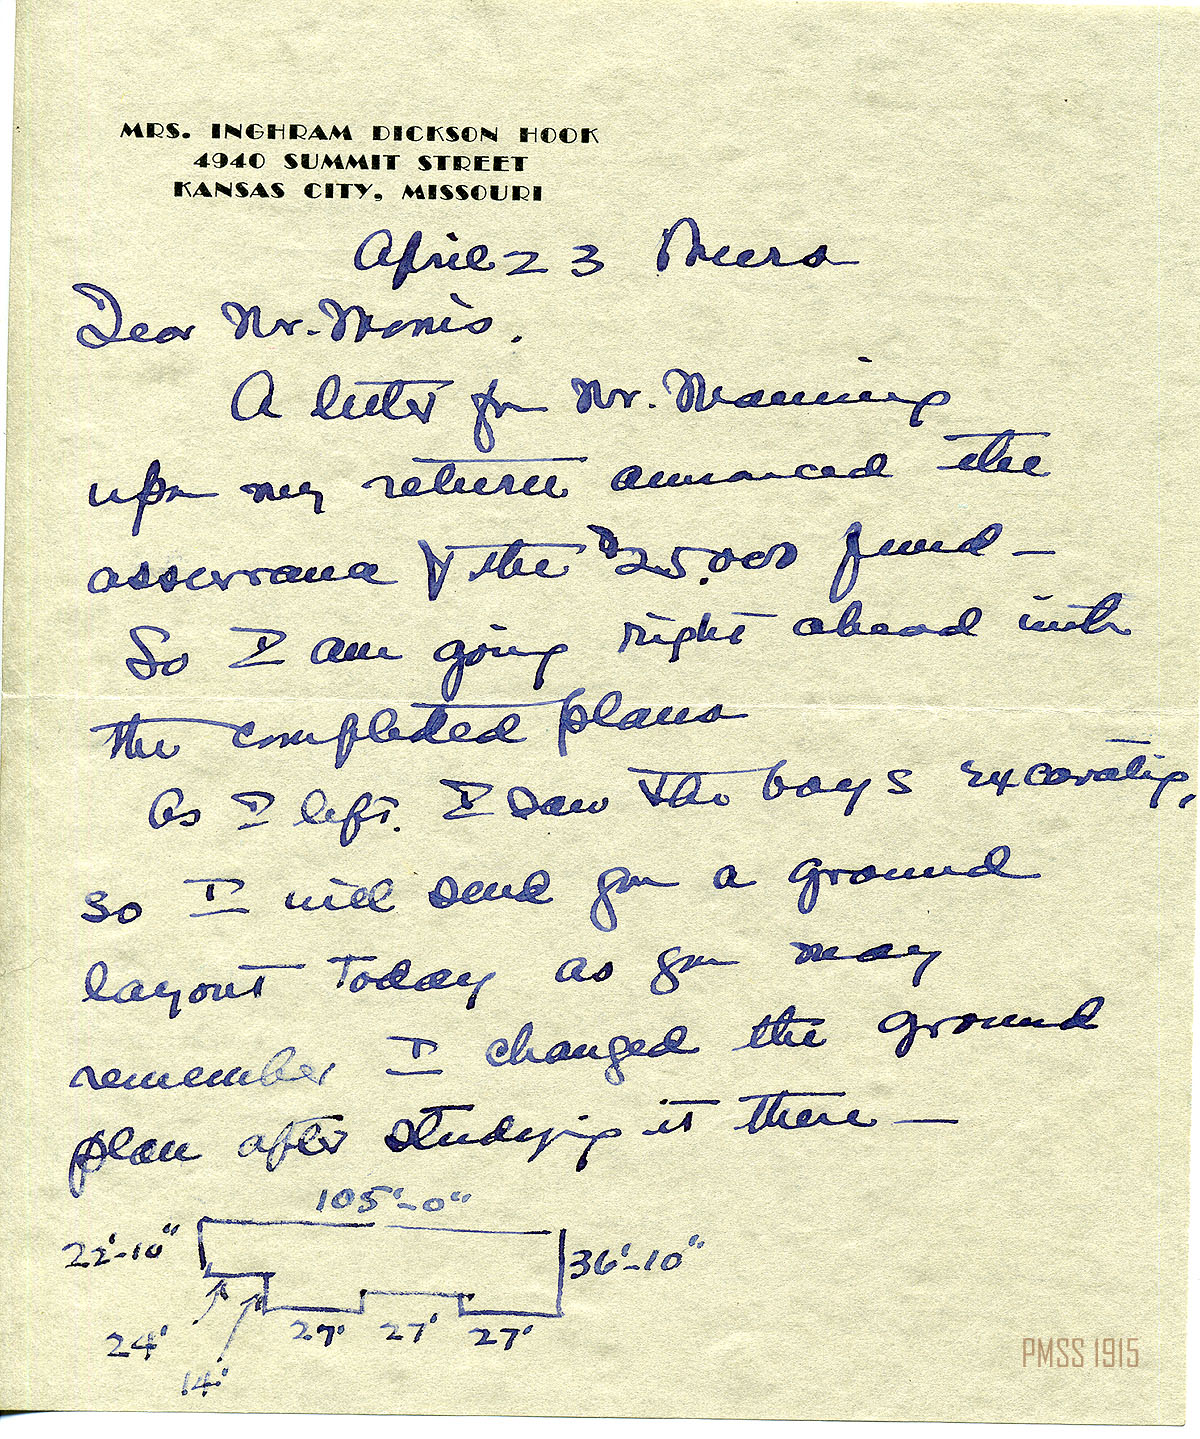 MRS. INGHRAM DICKSON HOOK
4940 SUMMIT STREET
KANSAS CITY, MISSOURI
April 23 Thurs
Dear Mr. Morris.
A letter fr Mr. Manning
upon my return announced the
assurrance of the $25,000 fund —
So I am going right ahead with
the completed plans
As I left. I saw the boys excavatig,
so I will send you a ground
layout today as you may
remember I changed the ground
plan after studying it there —
105'-0"
22'-10"
36'-10"
24' 27' 27' 27'
14'
PMSS 1915